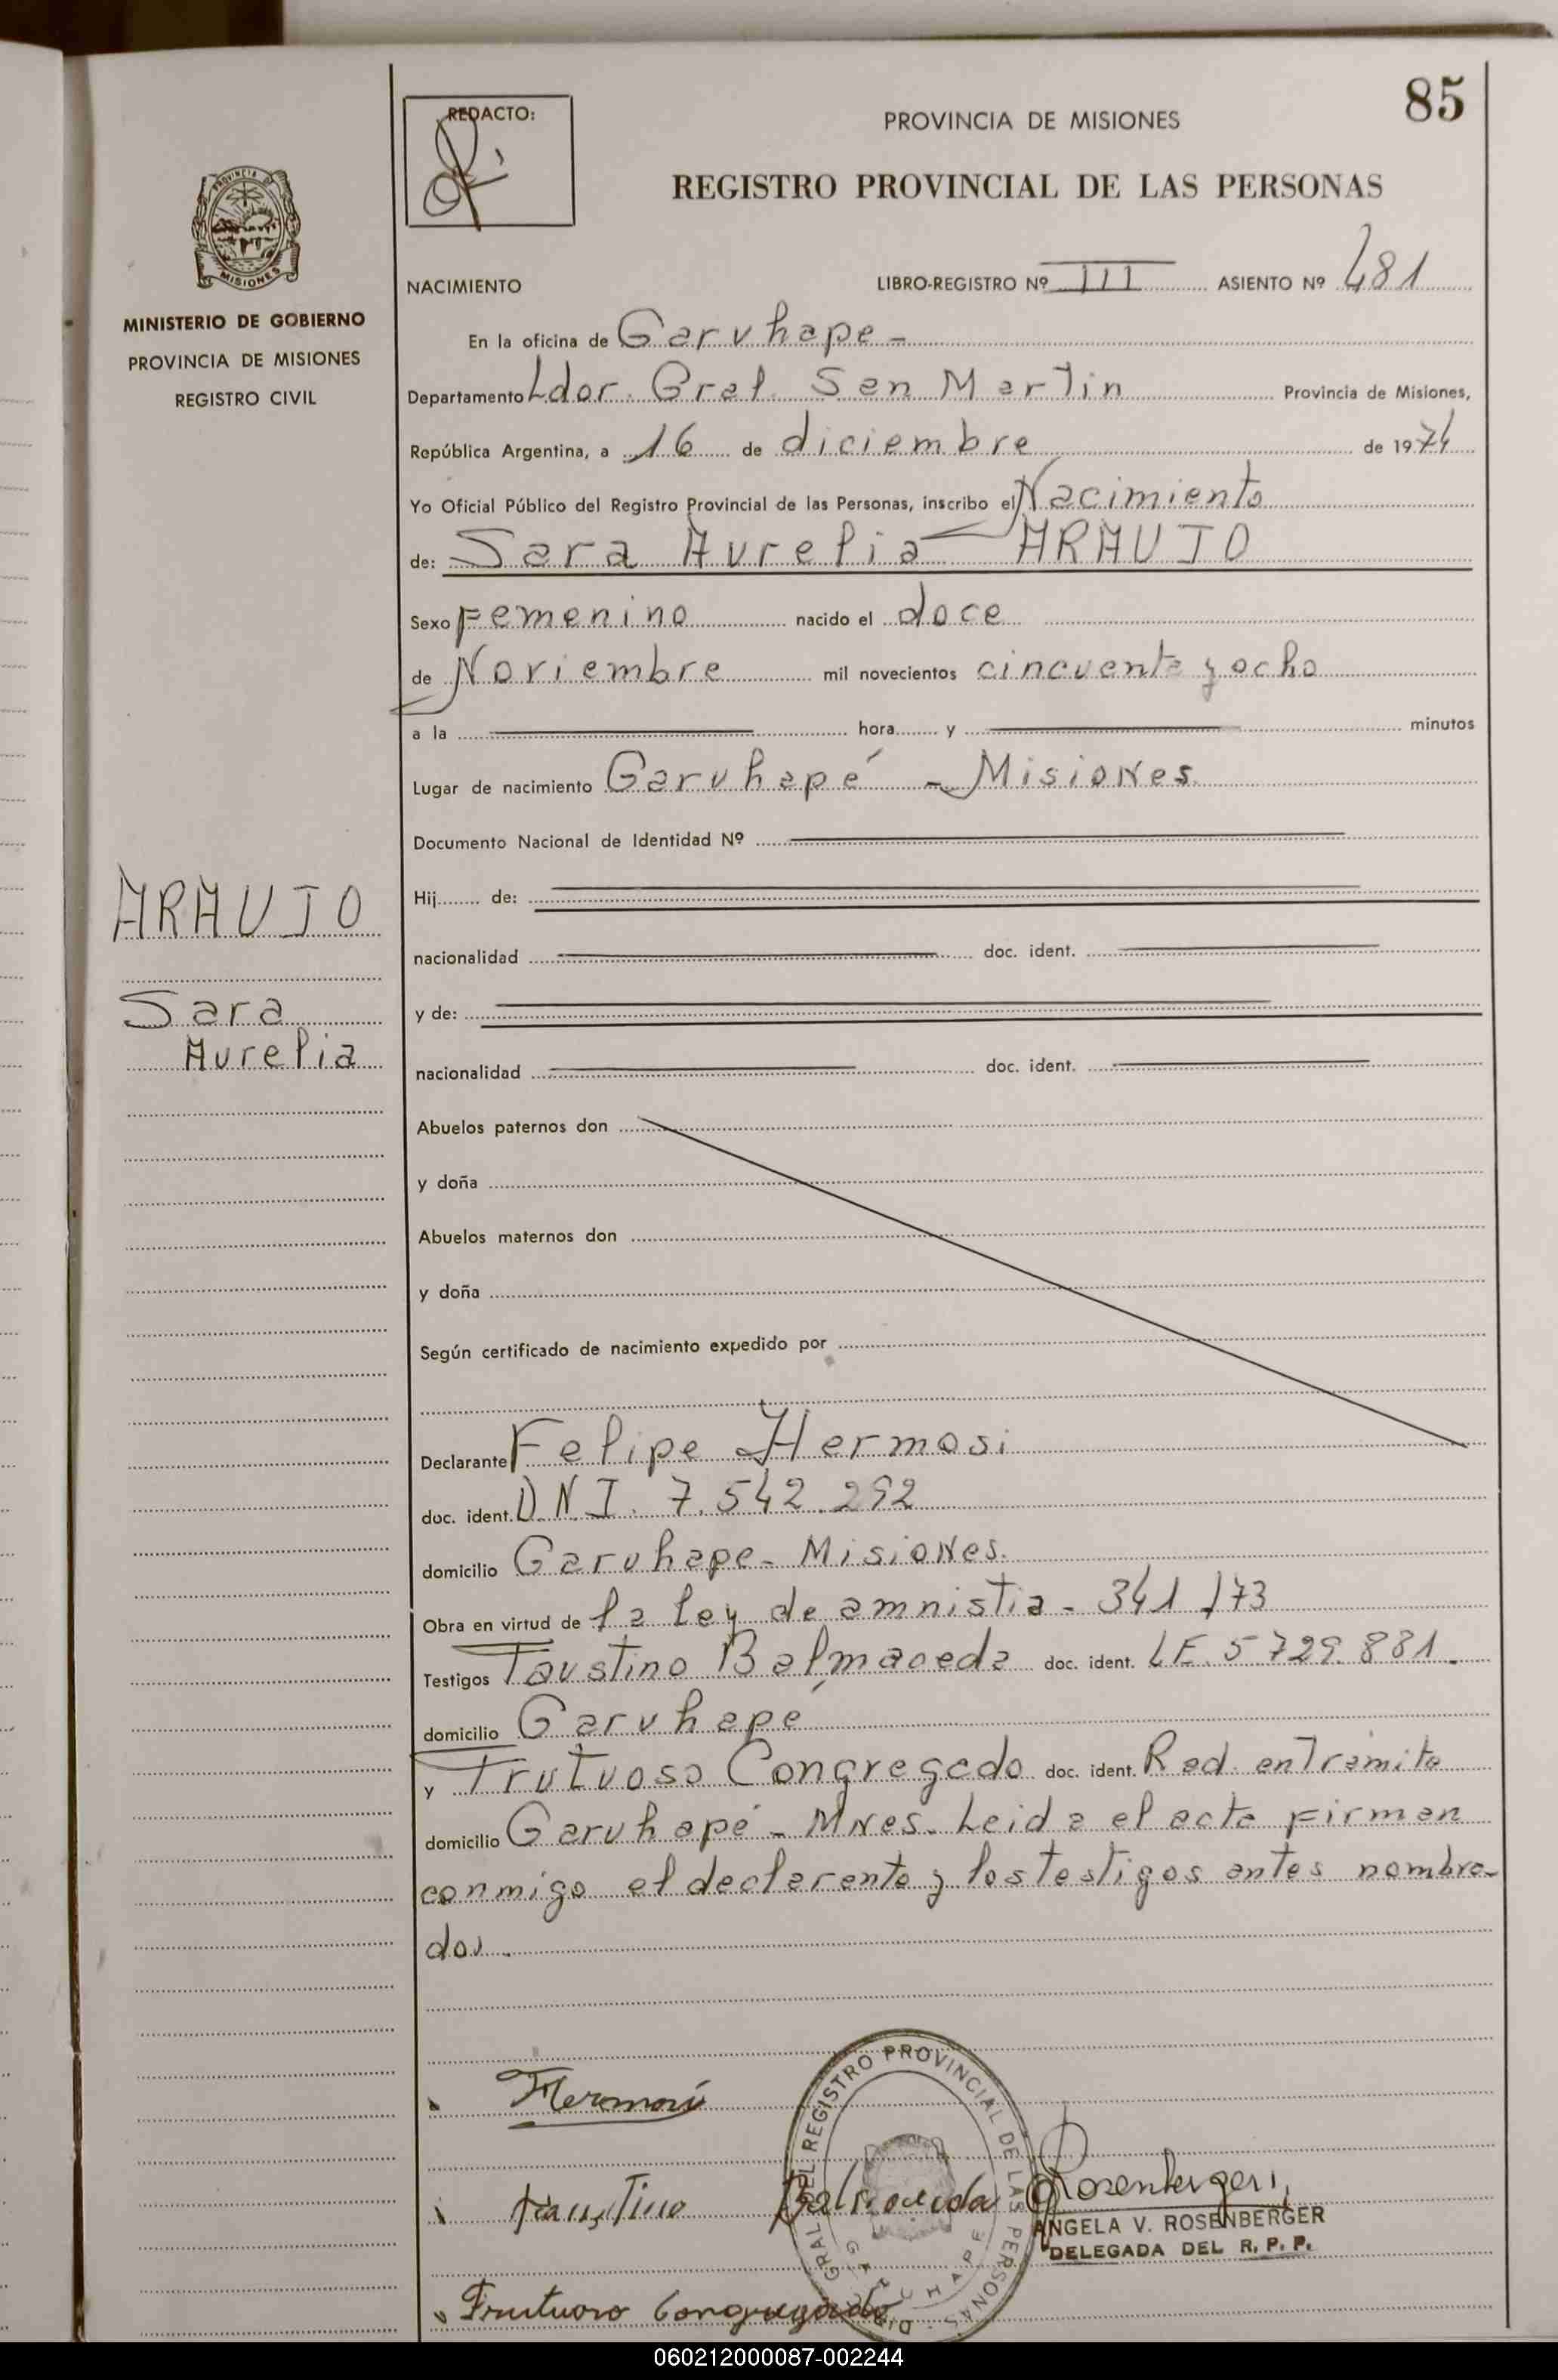 85
REDACTO:
PROVINCIA DE MISIONES
REGISTRO PROVINCIAL DE LAS PERSONAS
PROVINCIA DE
MISIONES
MINISTERIO DE GOBIERNO
PROVINCIA DE MISIONES
REGISTRO CIVIL
NACIMIENTO LIBRO-REGISTRO Nº III ASIENTO Nº 481
En la oficina de Garuhape -
Departamento Ldor. Gral. San Martin Provincia de Misiones,
República Argentina, a 16 de diciembre de 1974
Yo Oficial Público del Registro Provincial de las Personas, inscribo el Nacimiento
de: Sara Aurelia ARAUJO
Sexo Femenino nacido el doce
de Noviembre mil novecientos cincuenta y ocho
a la hora y minutos
Lugar de nacimiento Garuhapé - Misiones
Documento Nacional de Identidad Nº
ARAUJO
Sara
Aurelia
Hij de:
nacionalidad doc. ident.
y de:
nacionalidad doc. ident.
Abuelos paternos don
y doña
Abuelos maternos don
y doña
Según certificado de nacimiento expedido por
Declarante Felipe Hermosi
doc. ident. D.N.I. 7.542.292
domicilio Garuhape - Misiones.
Obra en virtud de la ley de amnistia - 341/73
Testigos Faustino Balmaceda doc. ident. LE. 5729.881.
domicilio Garuhapé
y Frutuoso Congregado doc. ident. Rad. en Tramite
domicilio Garuhapé - Mnes. Leida el acta firman
conmigo el declarante y los testigos antes nombra-
dos.
Hermosi
Faustino Balmaceda
Rosenberger
ANGELA V. ROSENBERGER
DELEGADA DEL R. P. P.
Frutuoso Congregado
DIR. GRAL. DEL REGISTRO PROVINCIAL DE LAS PERSONAS
GARUHAPE
060212000087-002244